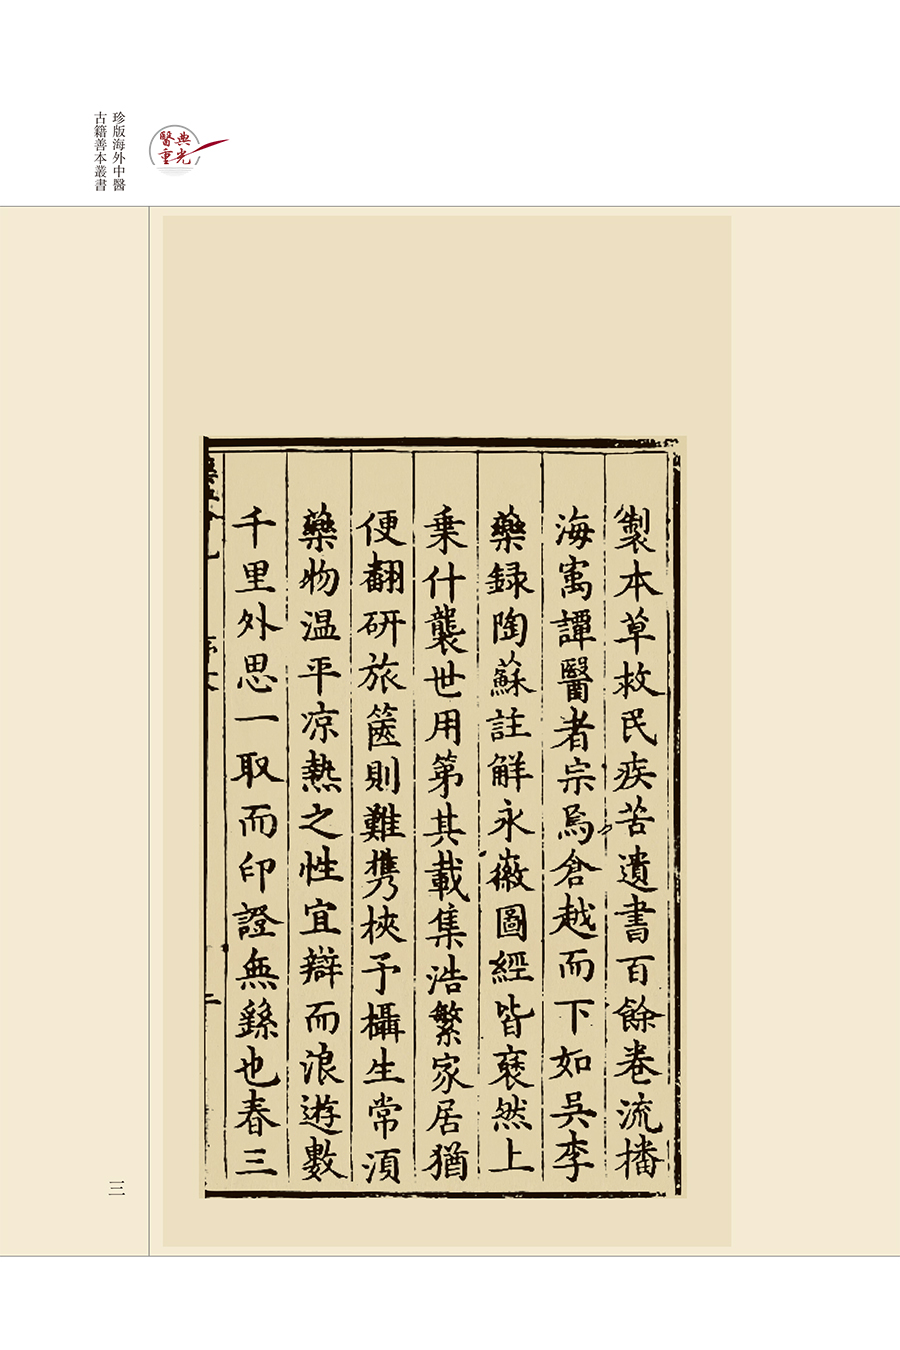 珍版海外中醫
古籍善本叢書
醫典
重光
製本草救民疾苦遺書百餘卷流播
海寓譚醫者宗焉倉越而下如吳李
藥録陶蘇註解永徽圖經皆裒然上
乗什襲世用第其載集浩繁家居猶
便翻研旅篋則難携梜予櫑生常湏
藥物温平凉熱之性宜辯而浪遊數
千里外思一取而印證無繇也春三
三